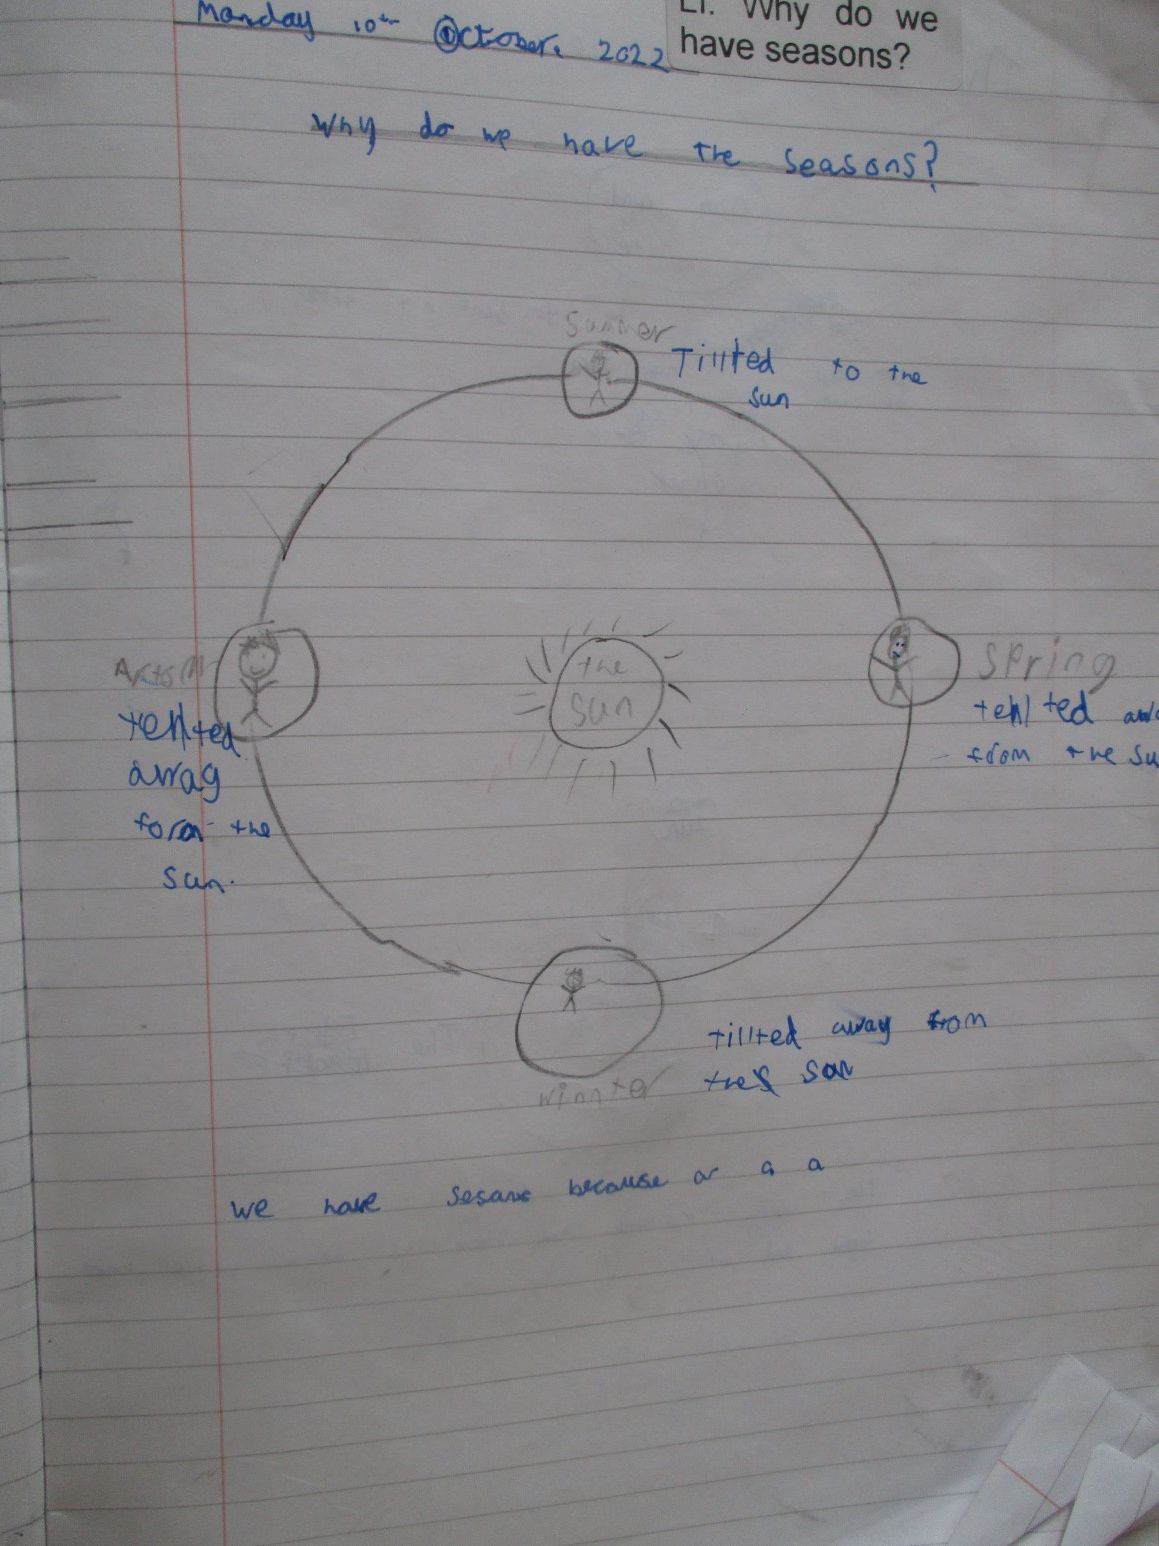 Monday 10th October 2022
LI: Why do we
have seasons?
Why do we have the seasons?
Summer
Tillted to the
sun
the
sun
Spring
tehlted
from the su
tehlted
away
form the
sun.
winnter
tillted away from
the sun
we have sesans because or a a